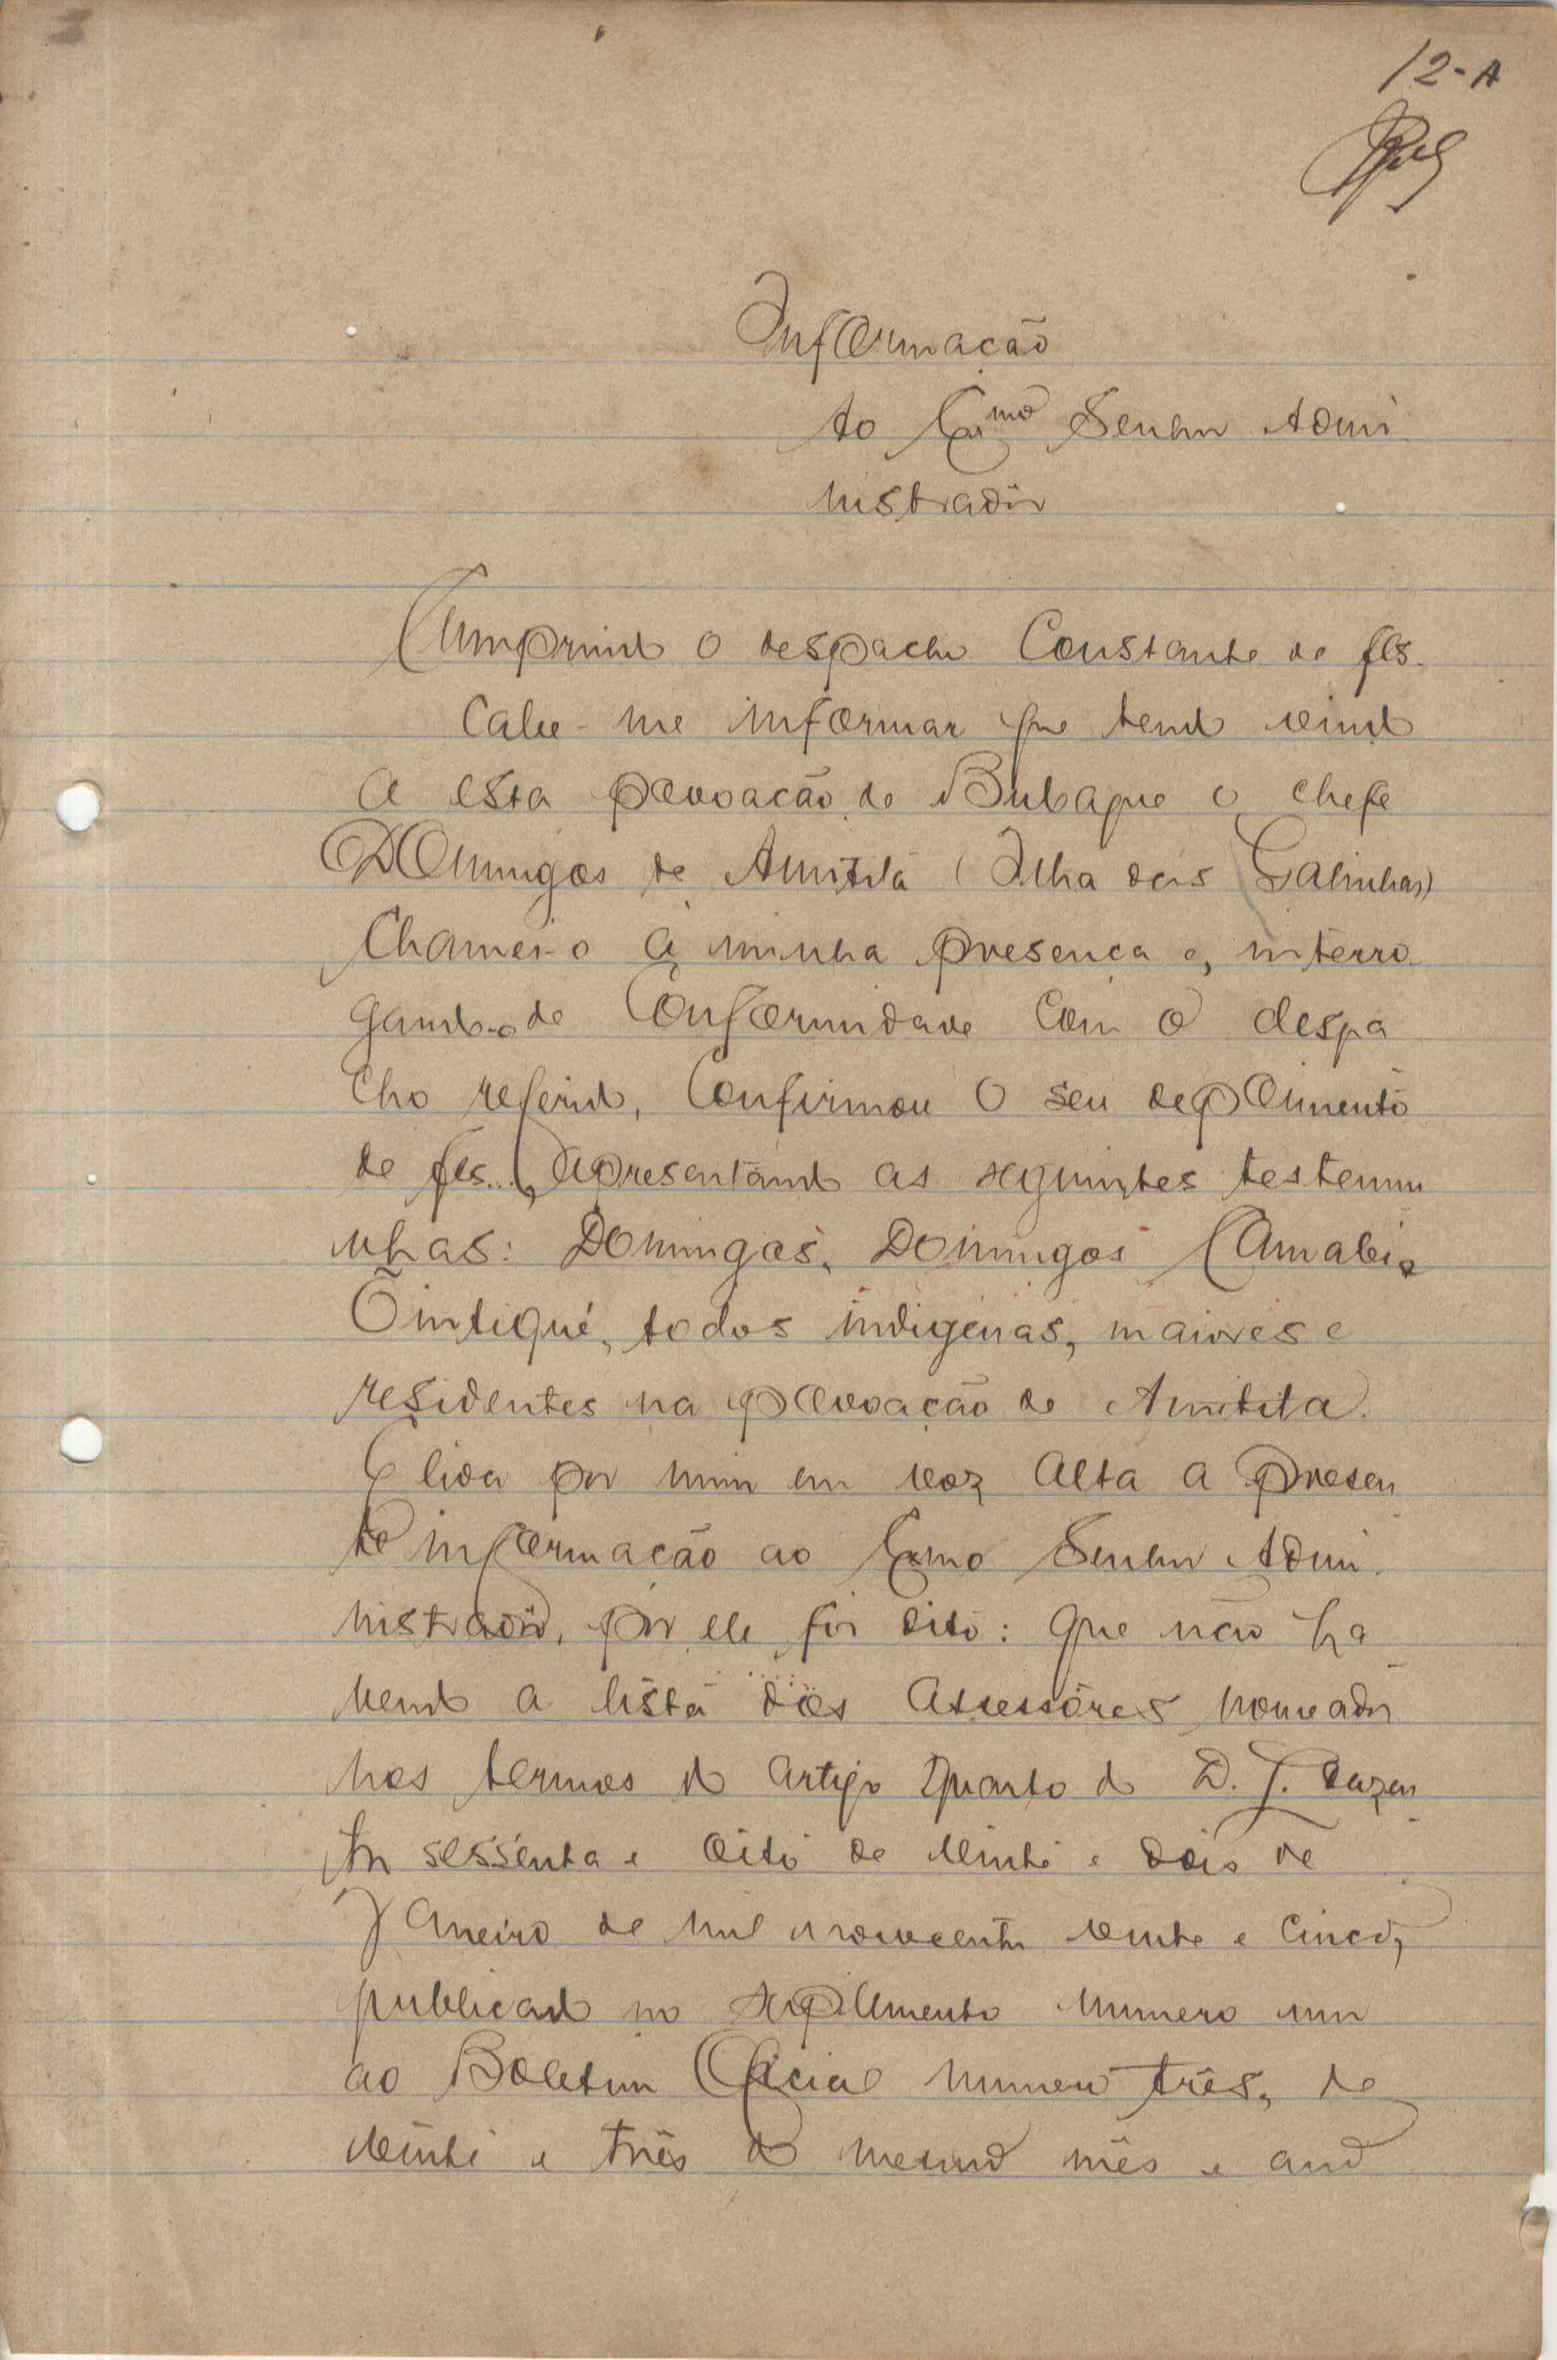 12-A
Informação
Ao Exmo Senhor Admi
nistradôr
Cumprindo o despacho constante de fls.
cabe-me informar que tendo vindo
a esta povoação de Bubaque o chefe
Domingos de Amitita (Ilha das Galinhas)
chamei-o á minha presença e, interro
gando-o de conformidade com o despa
cho referido, confirmou o seu depoimento
de fls..., apresentando as seguintes testemu
nhas: Domingas, Domingos Camabi e
Õintiqué, todos indigenas, maiores e
residentes na povoação de Amitita.
E lida por mim em voz alta a presen
te informação ao Exmo Senhor Admi
nistradôr, por ele foi dito: que não ha
vendo a lista dos assessôres nomeados
nos termos do artigo quarto do D. J. duzen
tos sessenta e oito de vinte e dois de
Janeiro de mil novecentos vinte e cinco,
publicado no suplemento numero um
ao Boletim Oficial numero três, de
vinte e três do mesmo mês e ano